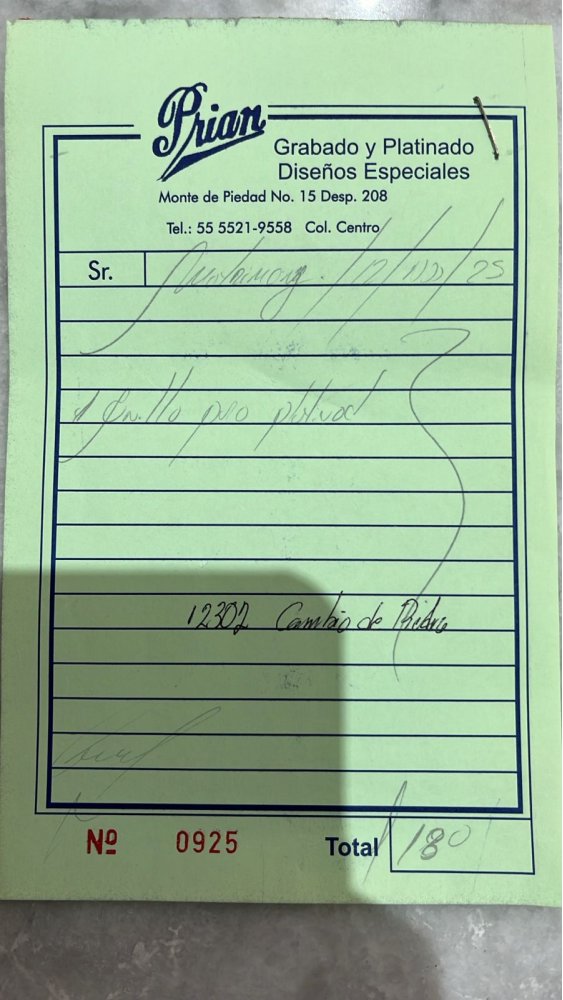 Prian
Grabado y Platinado
Diseños Especiales
Monte de Piedad No. 15 Desp. 208
Tel.: 55 5521-9558 Col. Centro
Sr. 25
1
12302 Cambio de Piedra
Nº 0925 Total 180